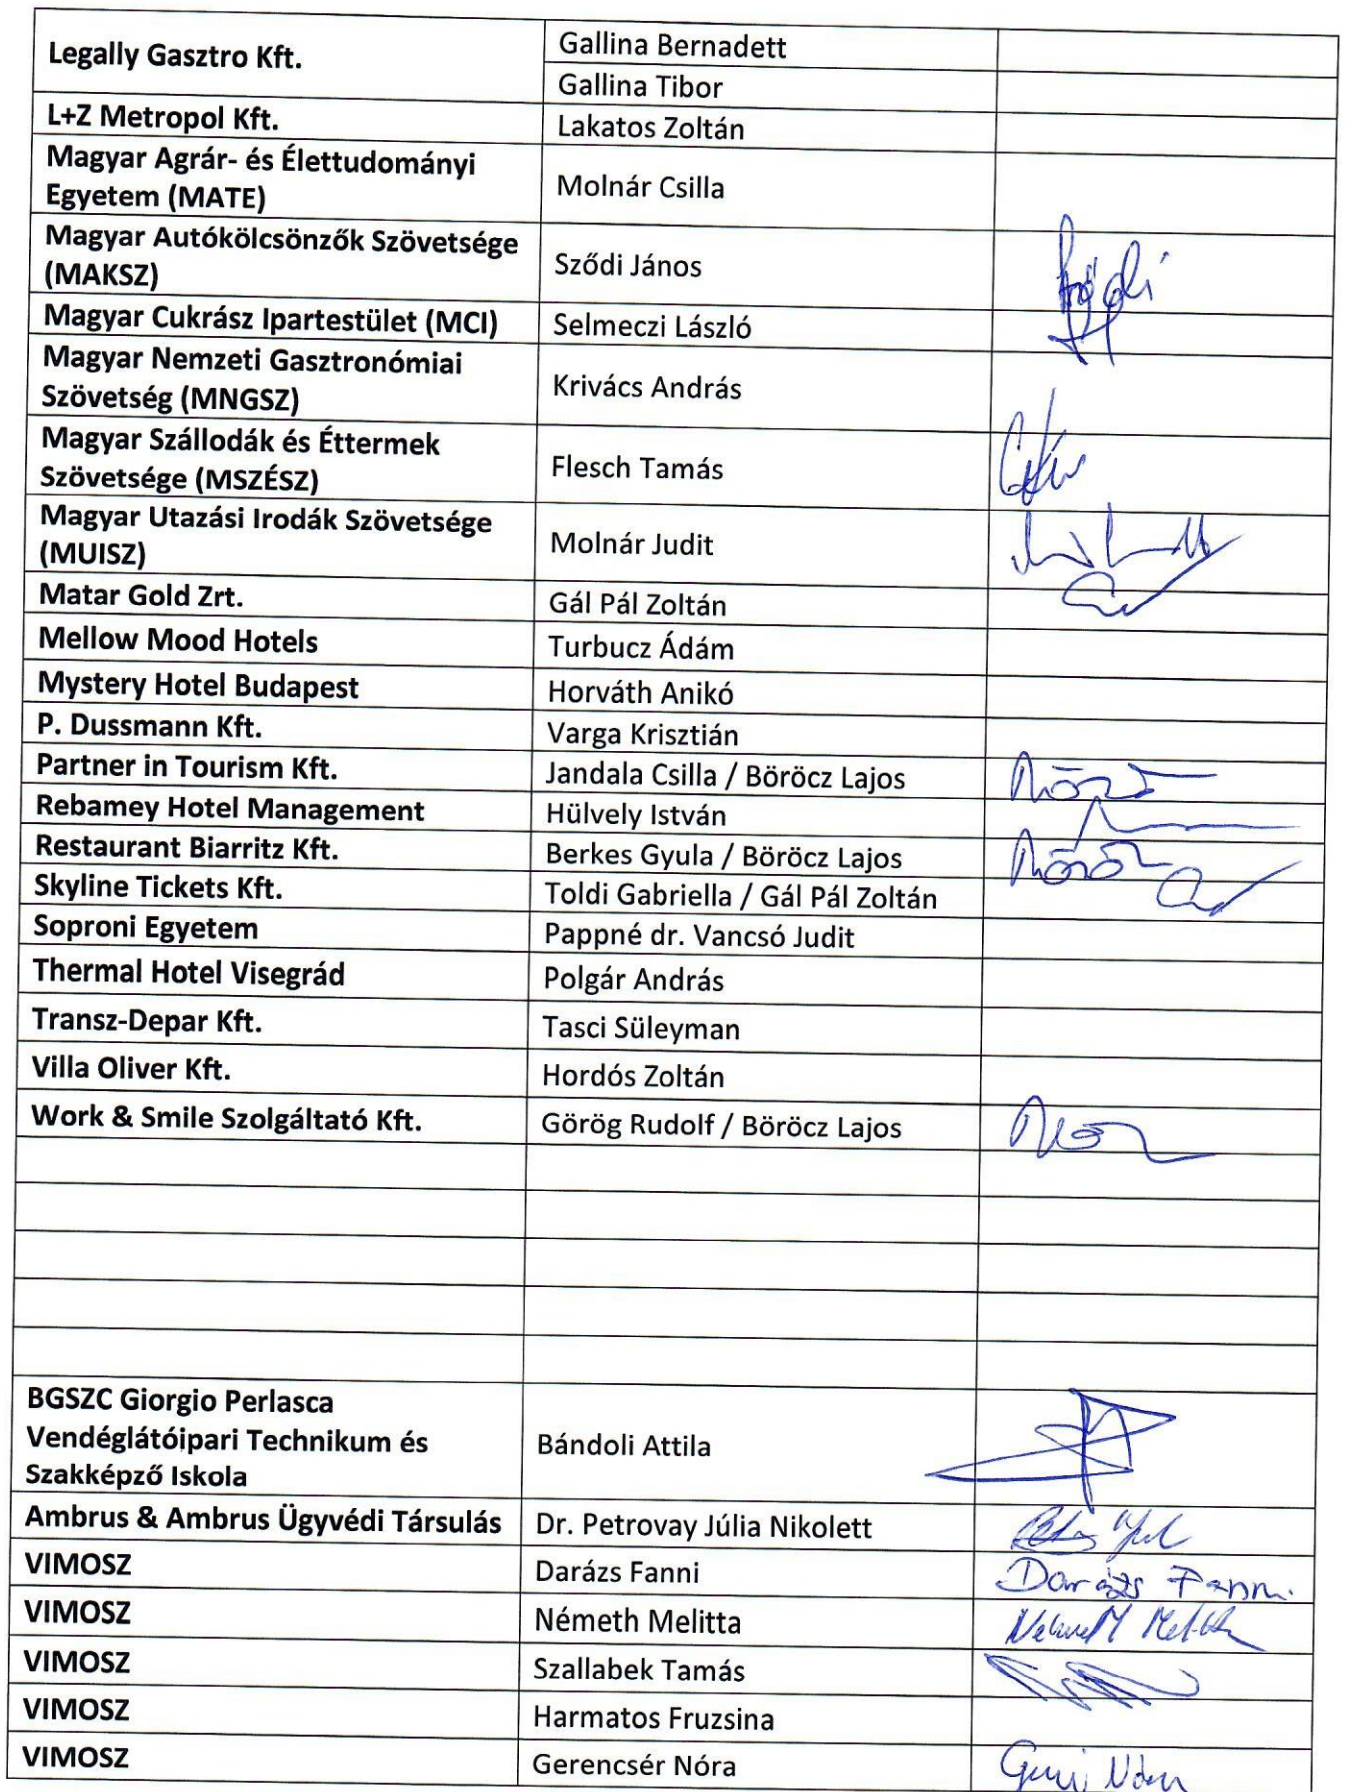 Legally Gasztro Kft.
Gallina Bernadett
Gallina Tibor
L+Z Metropol Kft.
Lakatos Zoltán
Magyar Agrár- és Élettudományi
Egyetem (MATE)
Molnár Csilla
Magyar Autókölcsönzők Szövetsége
(MAKSZ)
Sződi János
Magyar Cukrász Ipartestület (MCI)
Selmeczi László
Magyar Nemzeti Gasztronómiai
Szövetség (MNGSZ)
Krivács András
Magyar Szállodák és Éttermek
Szövetsége (MSZÉSZ)
Flesch Tamás
Magyar Utazási Irodák Szövetsége
(MUISZ)
Molnár Judit
Matar Gold Zrt.
Gál Pál Zoltán
Mellow Mood Hotels
Turbucz Ádám
Mystery Hotel Budapest
Horváth Anikó
P. Dussmann Kft.
Varga Krisztián
Partner in Tourism Kft.
Jandala Csilla / Böröcz Lajos
Rebamey Hotel Management
Hülvely István
Restaurant Biarritz Kft.
Berkes Gyula / Böröcz Lajos
Skyline Tickets Kft.
Toldi Gabriella / Gál Pál Zoltán
Soproni Egyetem
Pappné dr. Vancsó Judit
Thermal Hotel Visegrád
Polgár András
Transz-Depar Kft.
Tasci Süleyman
Villa Oliver Kft.
Hordós Zoltán
Work & Smile Szolgáltató Kft.
Görög Rudolf / Böröcz Lajos
BGSZC Giorgio Perlasca
Vendéglátóipari Technikum és
Szakképző Iskola
Bándoli Attila
Ambrus & Ambrus Ügyvédi Társulás
Dr. Petrovay Júlia Nikolett
VIMOSZ
Darázs Fanni
Darázs Fanni
VIMOSZ
Németh Melitta
VIMOSZ
Szallabek Tamás
VIMOSZ
Harmatos Fruzsina
VIMOSZ
Gerencsér Nóra